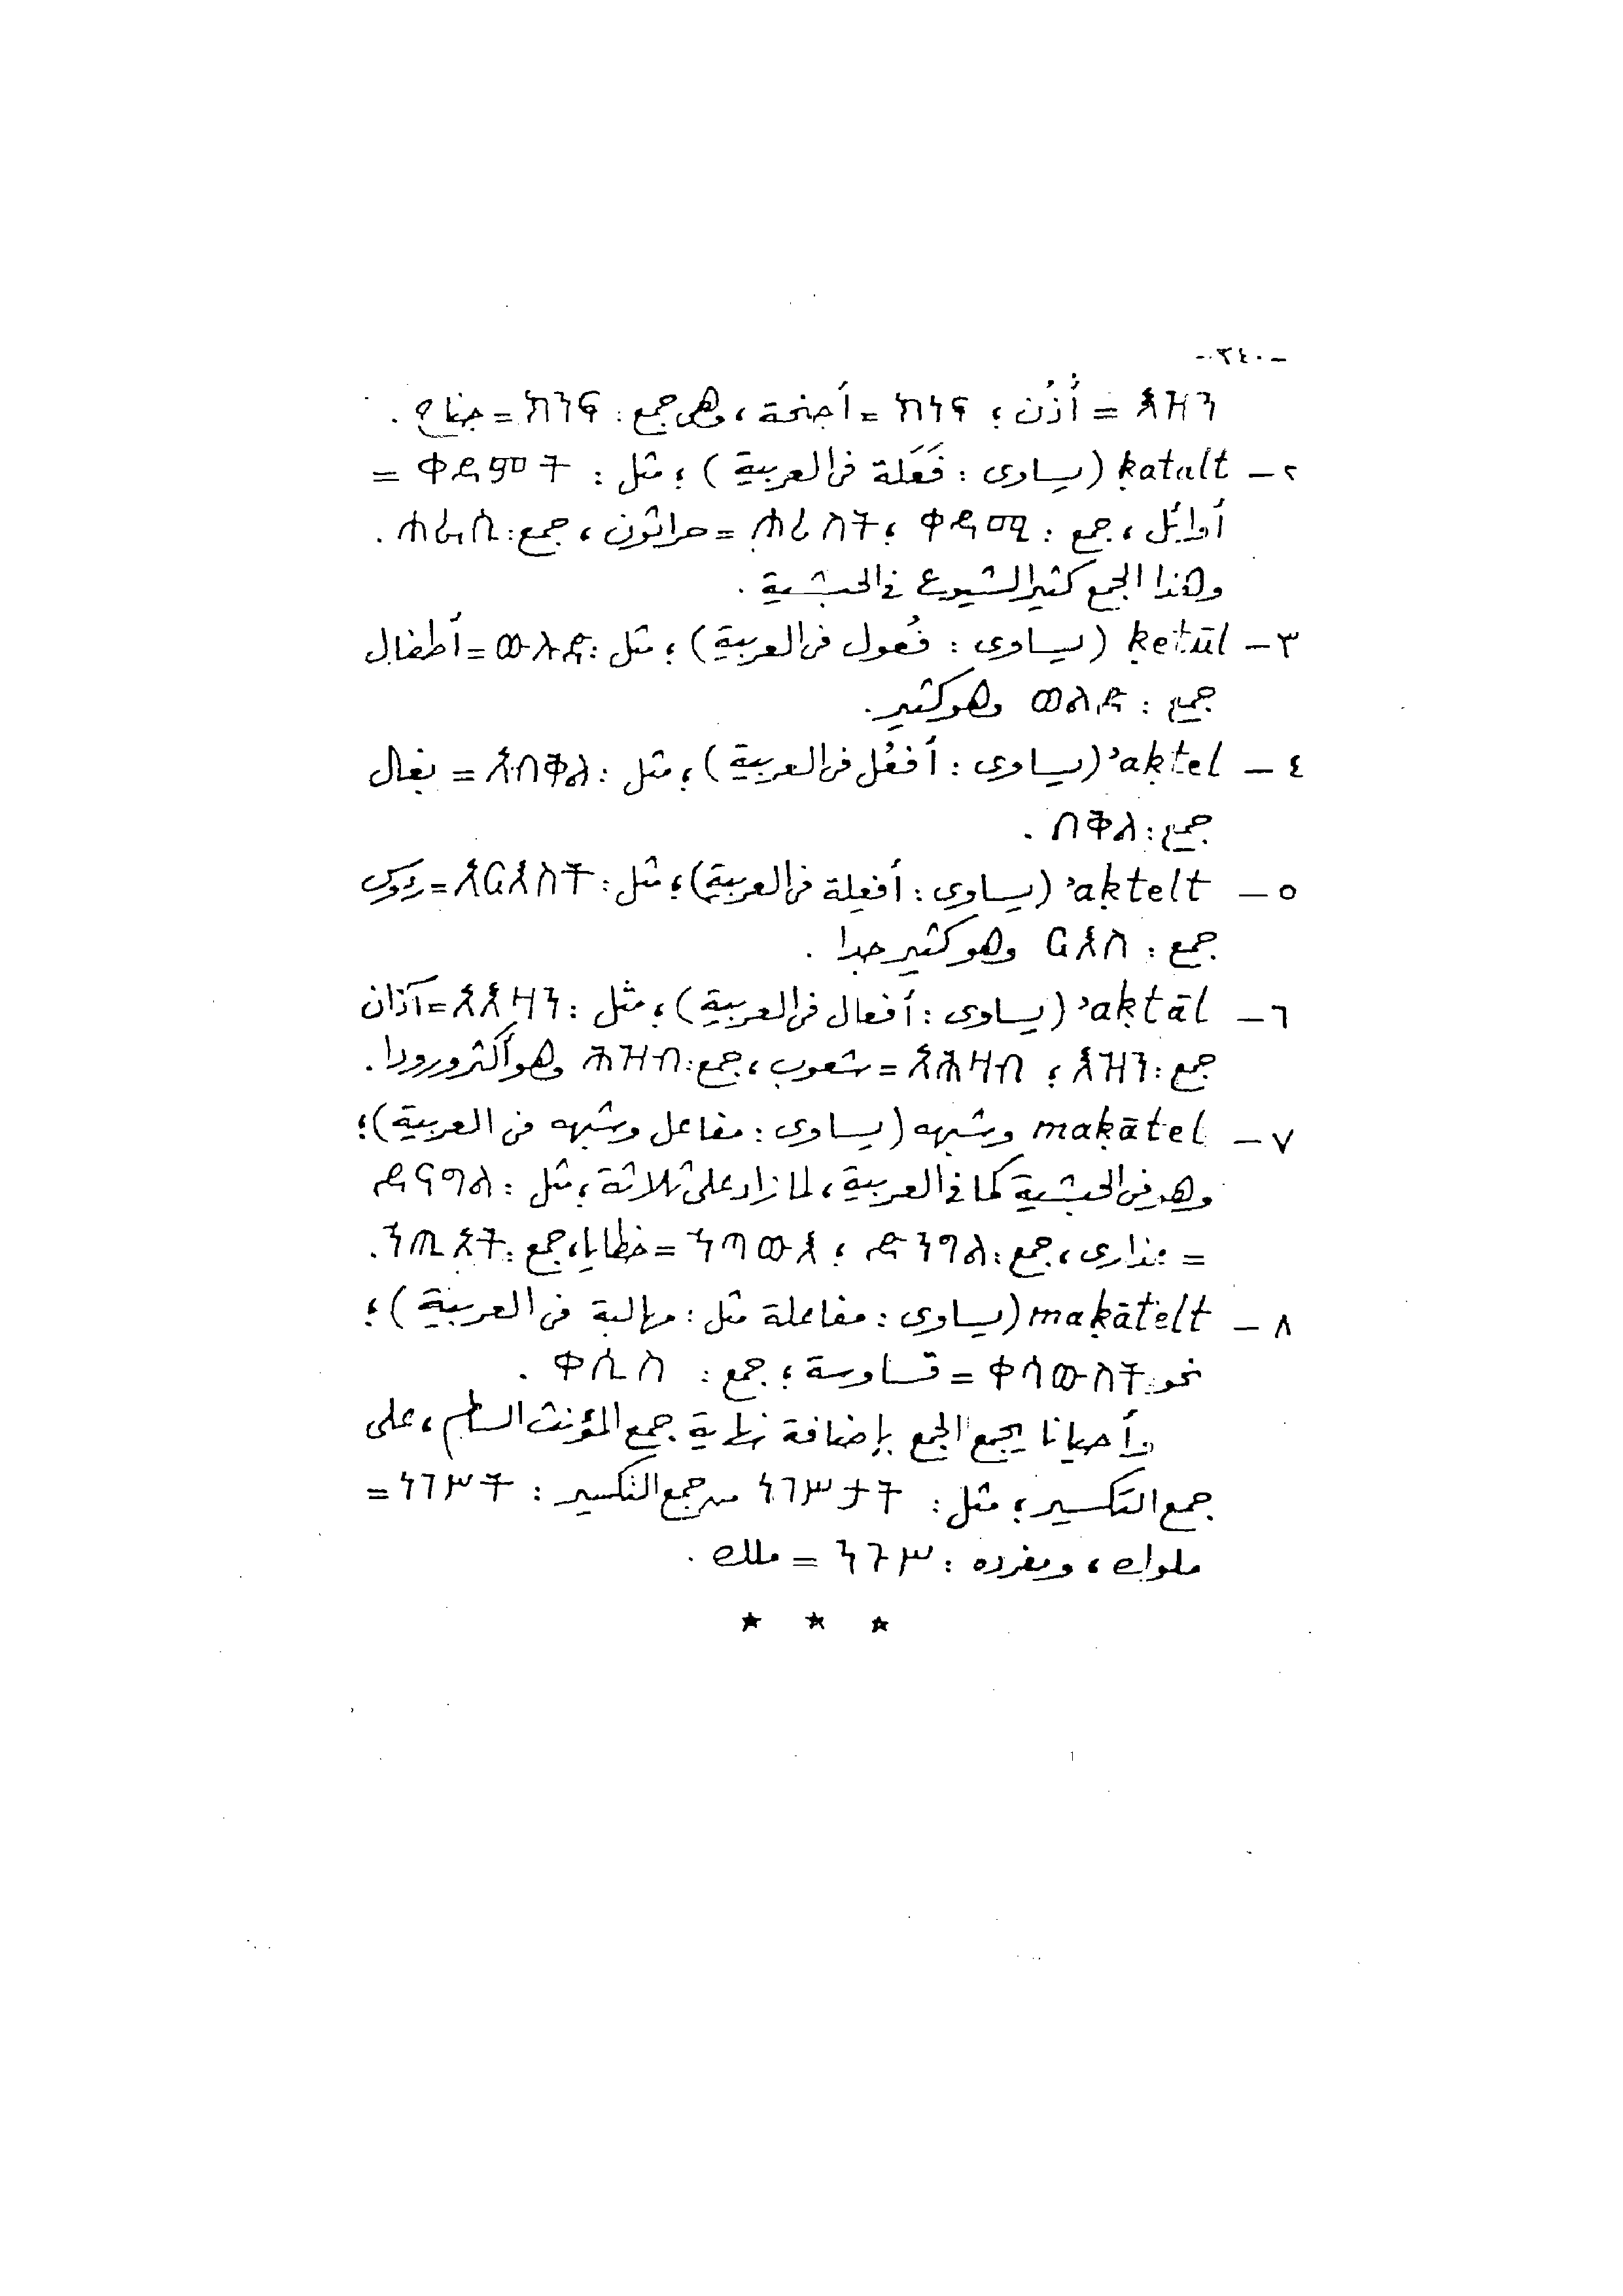 -٣٤٠-
እዝን = أُذُن ؛ ከነፍ = أجنحة ، وهى جمع : ክንፍ = جناح .
٢ - ḳatalt (يساوى : فَعَلة فى العربية) ؛ مثل : ቀደምት =
أوائل ، جمع : ቀዳሚ ؛ ሐረስት = حراثون ، جمع : ሐራሲ .
وهذا الجمع كثير الشيوع فى الحبشية .
٣ - ḳetūl (يساوى : فُعول فى العربية) ؛ مثل : ውሉድ = أطفال
جمع : ወልድ وهو كثير .
٤ - ʾaḳtel (يساوى : أفعُل فى العربية) ؛ مثل : አብቅል = بغال
جمع : በቅል .
٥ - ʾaḳtelt (يساوى : أفعِلة فى العربية) ؛ مثل : አርእስት = رءوس
جمع : ርእስ وهو كثير جدا .
٦ - ʾaḳtāl (يساوى : أفعال فى العربية) ؛ مثل : አእዛን = آذان
جمع : እዝን ؛ አሕዛብ = شعوب ، جمع : ሕዝብ وهو أكثر ورودا .
٧ - maḳātel وشبهه (يساوى : مفاعل وشبهه فى العربية) ؛
وهو فى الحبشية كما فى العربية ، لما زاد على ثلاثة ؛ مثل : ደናግል
= عذارى ، جمع : ድንግል ؛ ኃጣውእ = خطايا ، جمع : ኃጢአት .
٨ - maḳātelt (يساوى : مفاعلة مثل : مهالبة فى العربية) ؛
نحو : ቀሳውስት = قساوسة ؛ جمع : ቀሲስ .
وأحيانا يجمع الجمع بإضافة نهاية جمع المؤنث السالم ، على
جمع التكسير ؛ مثل : ነገሥታት من جمع التكسير : ነገሥት =
ملوك ، ومفرده : ንጉሥ = ملك .
★ ★ ★